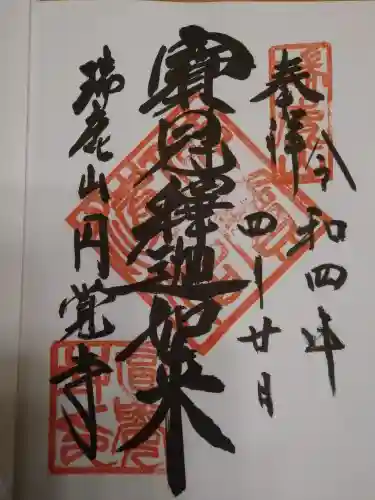 奉拝
令和四年
四月廿日
寳冠釋迦如来
瑞鹿山円覚寺